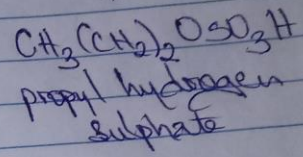 CH₃(CH₂)₂OSO₃H
propyl hydrogen
sulphate